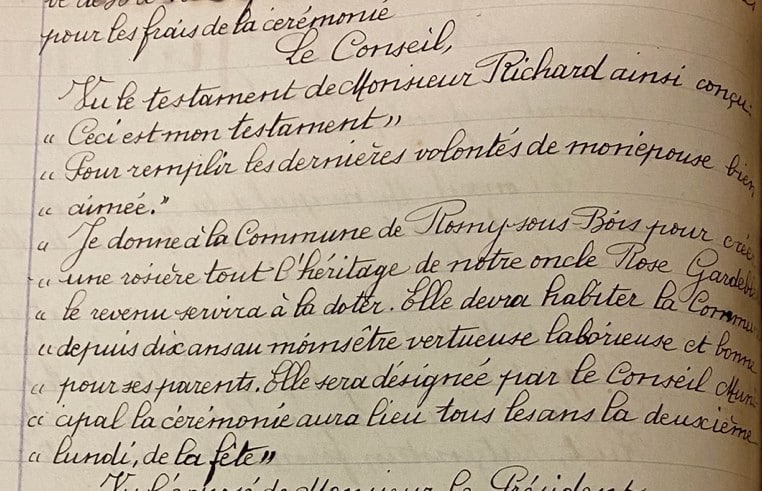 pour les frais de la cérémonie
Le Conseil,
Vu le testament de Monsieur Richard ainsi conçu:
« Ceci est mon testament »
« Pour remplir les dernières volontés de mon épouse bien
« aimée."
« Je donne à la Commune de Rosny-sous Bois pour crée
« une rosière tout l'héritage de notre oncle Rose Gardebl
« le revenu servira à la doter. Elle devra habiter la Commu
« depuis dix ans au moins être vertueuse laborieuse et bonne
« pour ses parents. Elle sera désignée par le Conseil Muni
« cipal la cérémonie aura lieu tous les ans la deuxième
« lundi, de la fête »
Vu l'exposé de Monsieur le Président